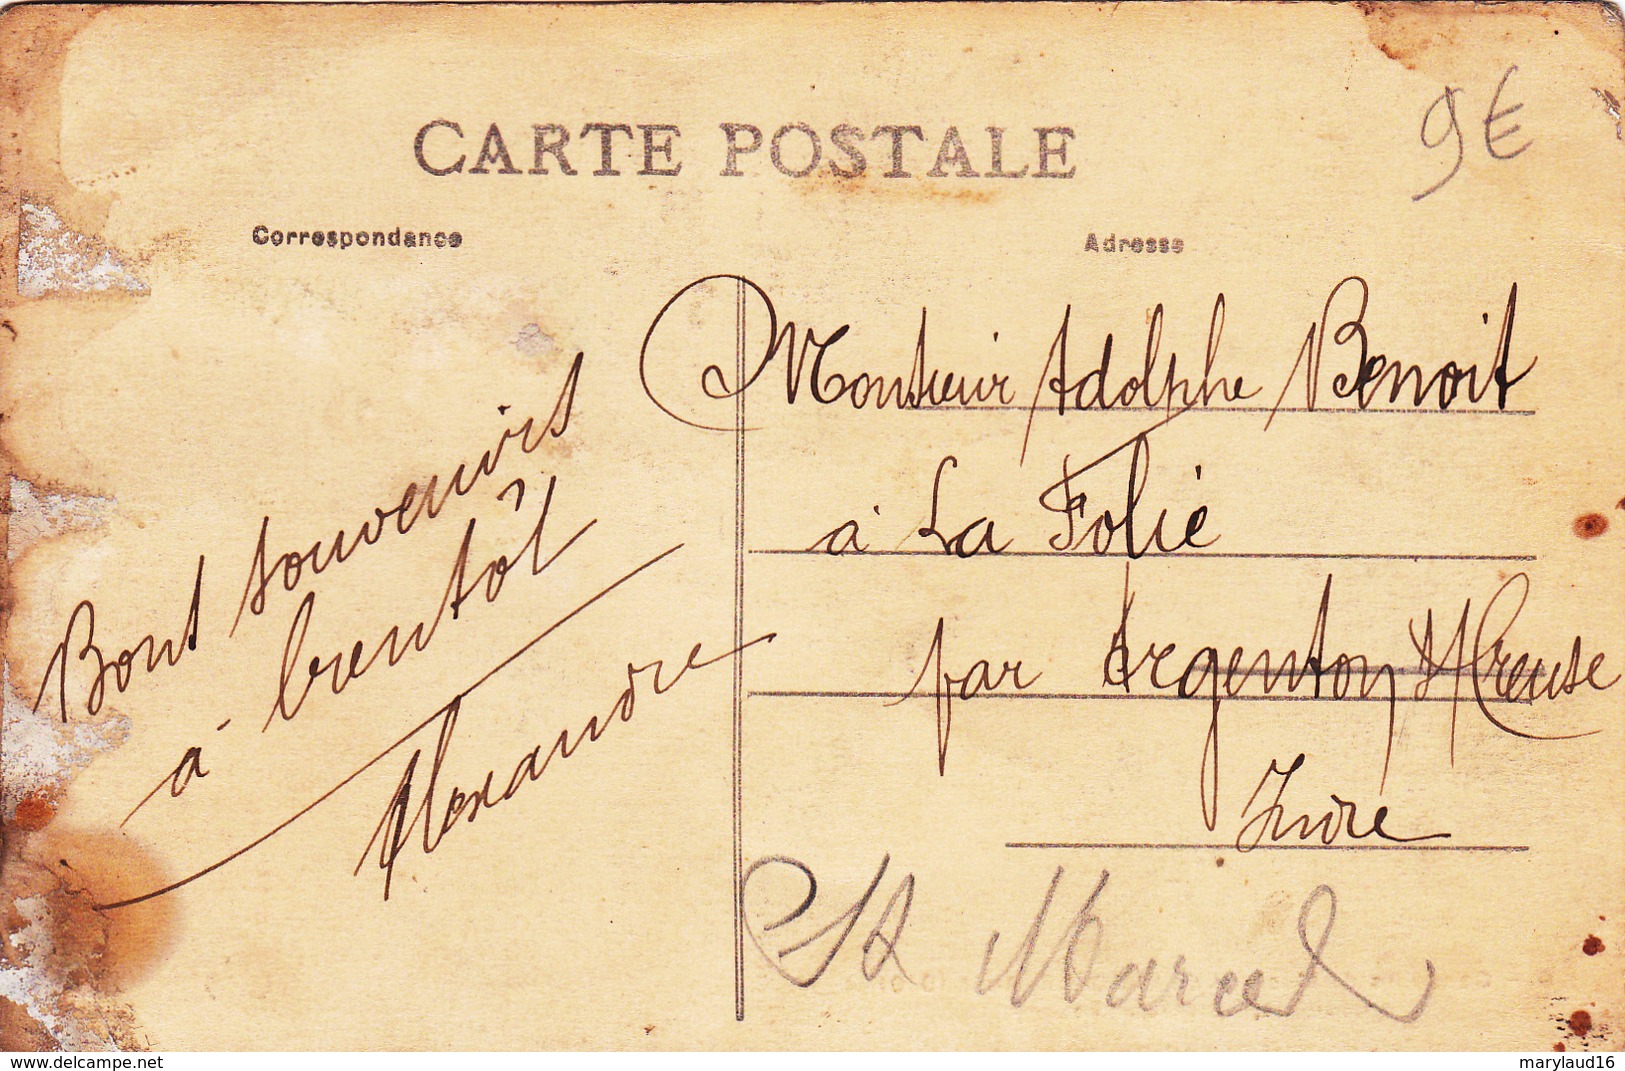 CARTE POSTALE
9€
Correspondance
Adresse
Bons souvenirs
à bientôt
Alexandre
Monsieur Adolphe Benoit
à La Folie
par Argenton s/ Creuse
Indre
St Marcel
www.delcampe.net
marylaud16